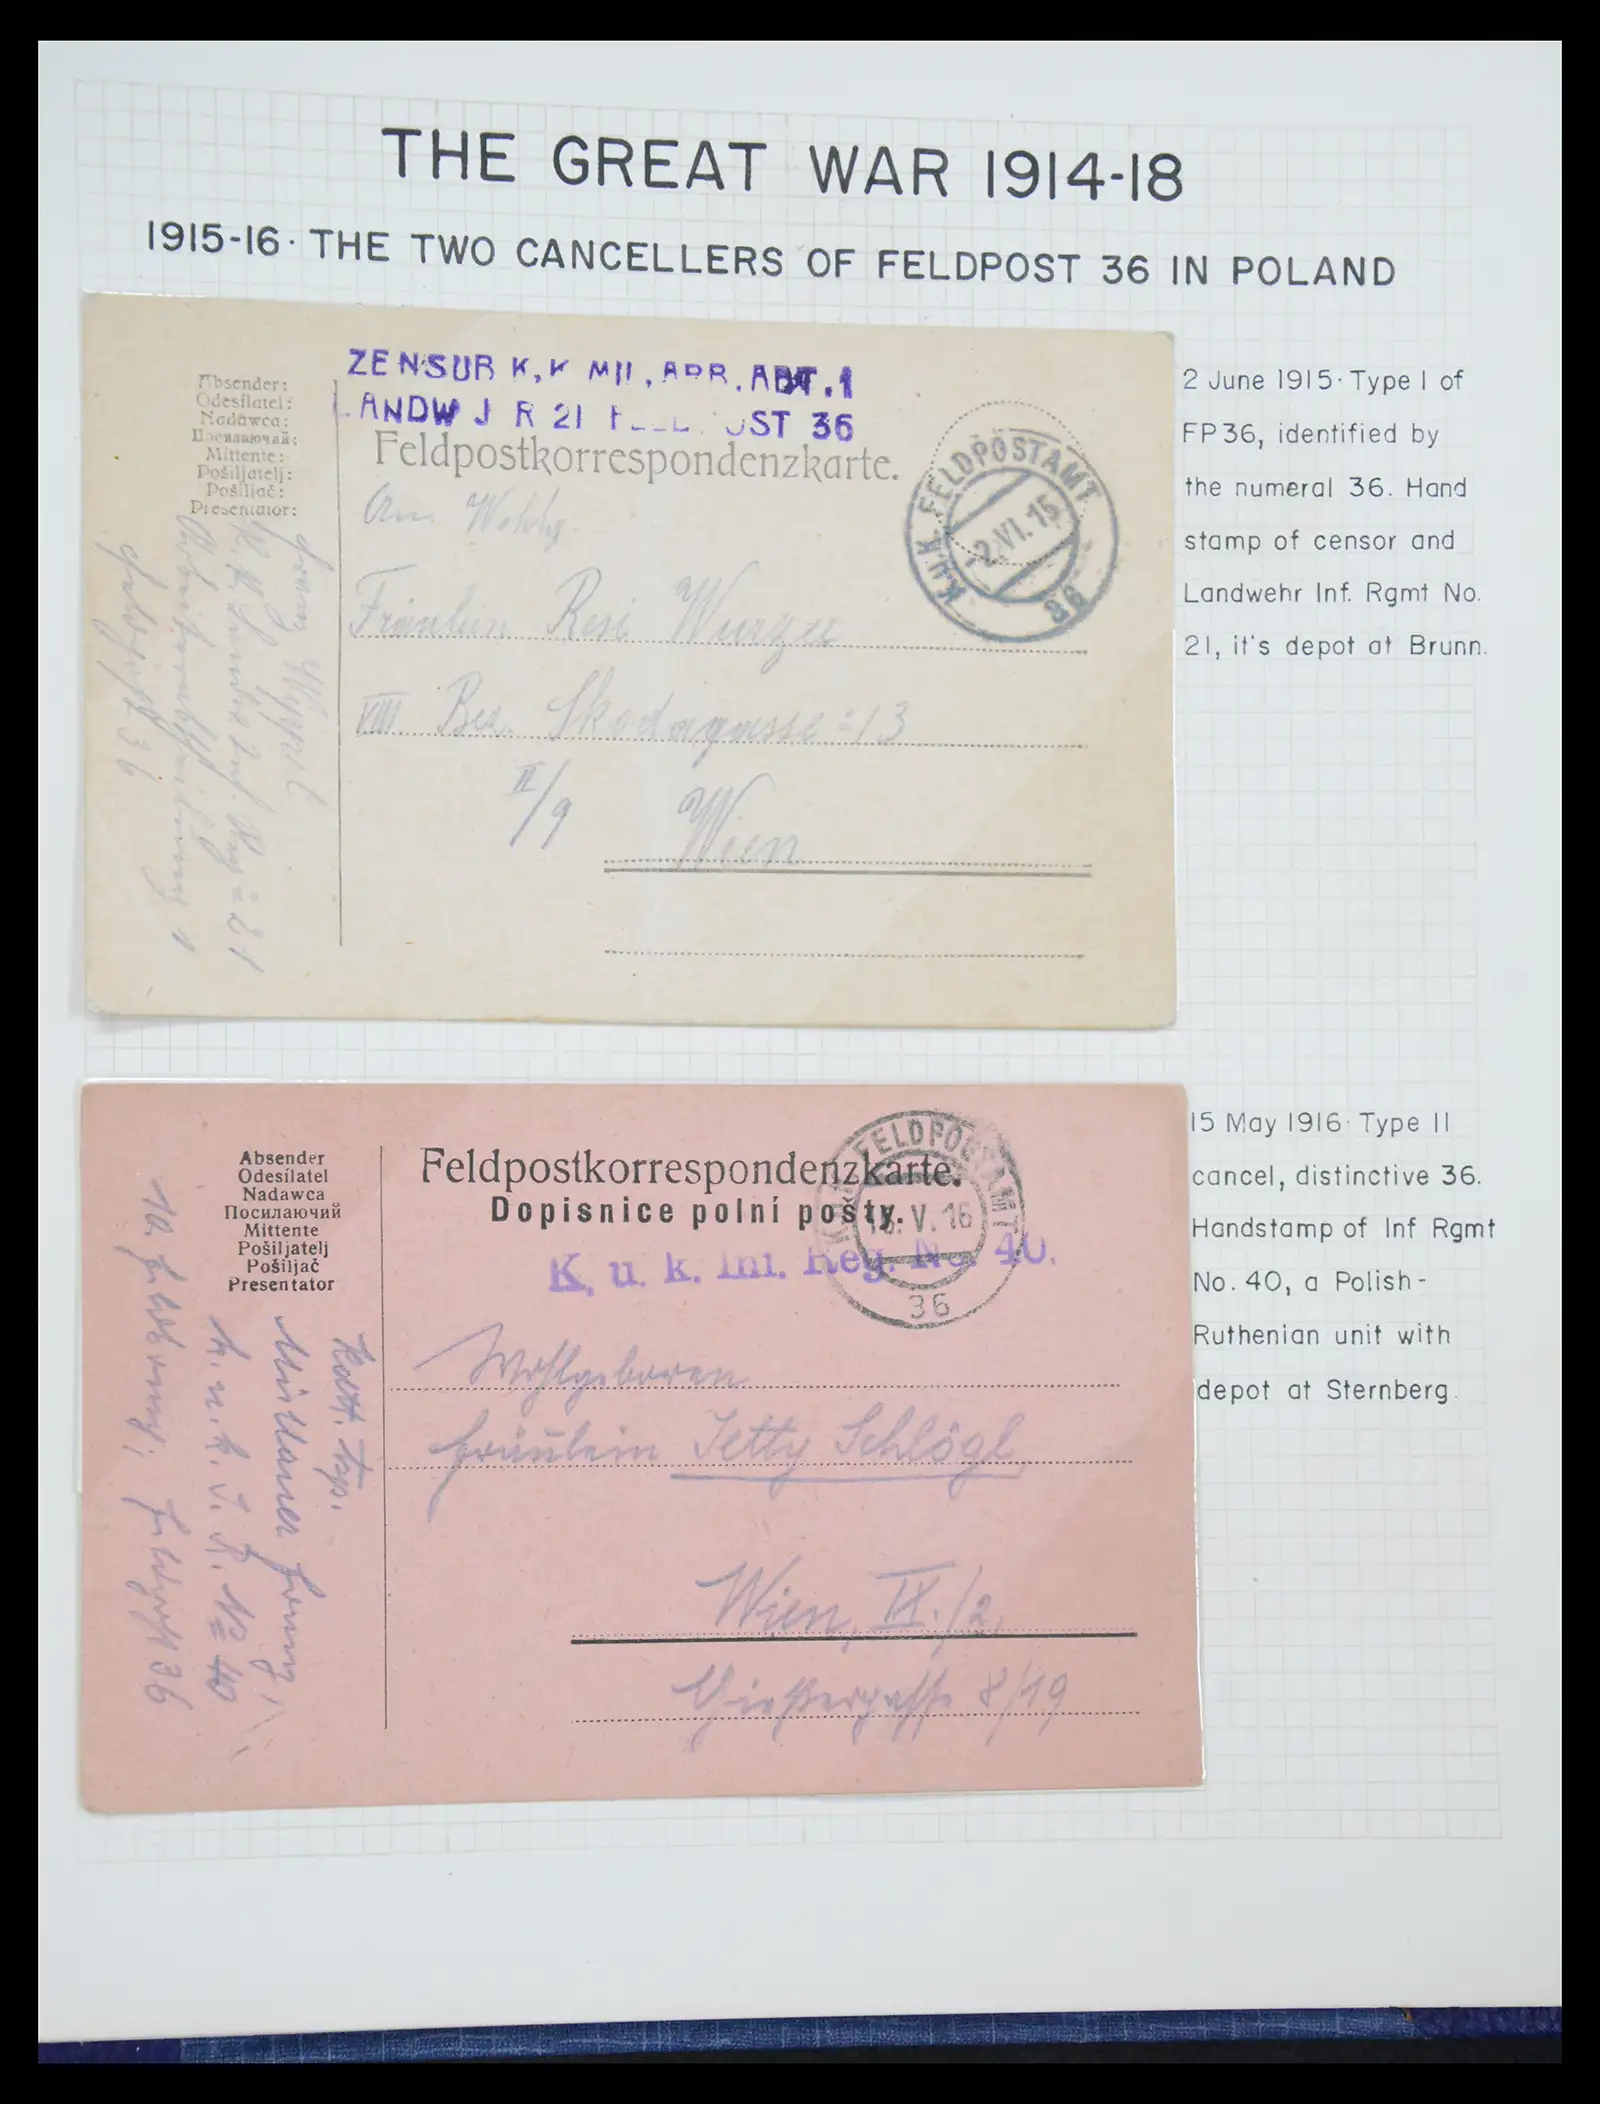 THE GREAT WAR 1914-18
1915-16· THE TWO CANCELLERS OF FELDPOST 36 IN POLAND
ZENSUR K.K MIL.ARB.ABT.1
LANDW J R 21 FELDPOST 36
Absender:
Odesílatel:
Nadawca:
Посилаючий:
Mittente:
Pošiljatelj:
Pošiljač:
Presentator:
Feldpostkorrespondenzkarte.
K.u.K. FELDPOSTAMT
-2.VI.15
36
An
Fräulein Resi
VIII Bez. Skodagasse 13
II/9 Wien
Franz
Feldpost 36
2 June 1915· Type I of
FP36, identified by
the numeral 36. Hand
stamp of censor and
Landwehr Inf. Rgmt No.
21, it's depot at Brunn.
Absender
Odesílatel
Nadawca
Посилаючий
Mittente
Pošiljatelj
Pošiljač
Presentator
Feldpostkorrespondenzkarte.
Dopisnice polní pošty.
K. u. k. Inf. Reg. No. 40.
FELDPOSTAMT
15.V.16
36
Wohlgeboren
Fräulein Jetty Schlögl
Wien, IX./2
8/19
Franz,
k. u. k. I. R. No 40
Feldpost 36
15 May 1916· Type II
cancel, distinctive 36.
Handstamp of Inf Rgmt
No. 40, a Polish-
Ruthenian unit with
depot at Sternberg.